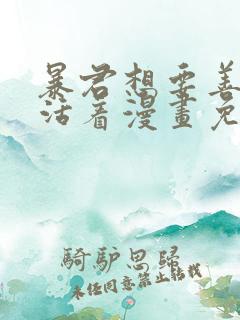 暴君想要善
活着漫畫免
騎驢思歸
未任同意禁止转载